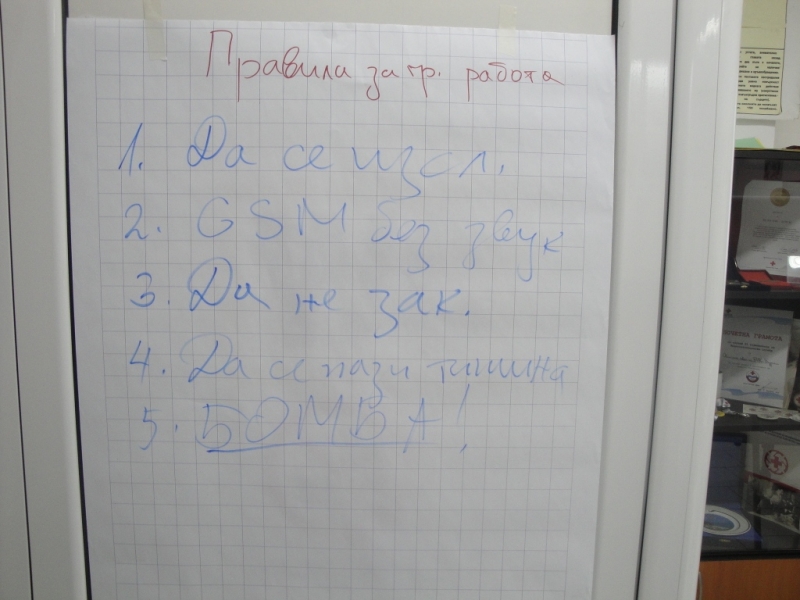 Правила за гр. работа
1. Да се изсл.
2. GSM без звук
3. Да не зак.
4. Да се пази тишина
5. БОМБА!
ГРАМОТА